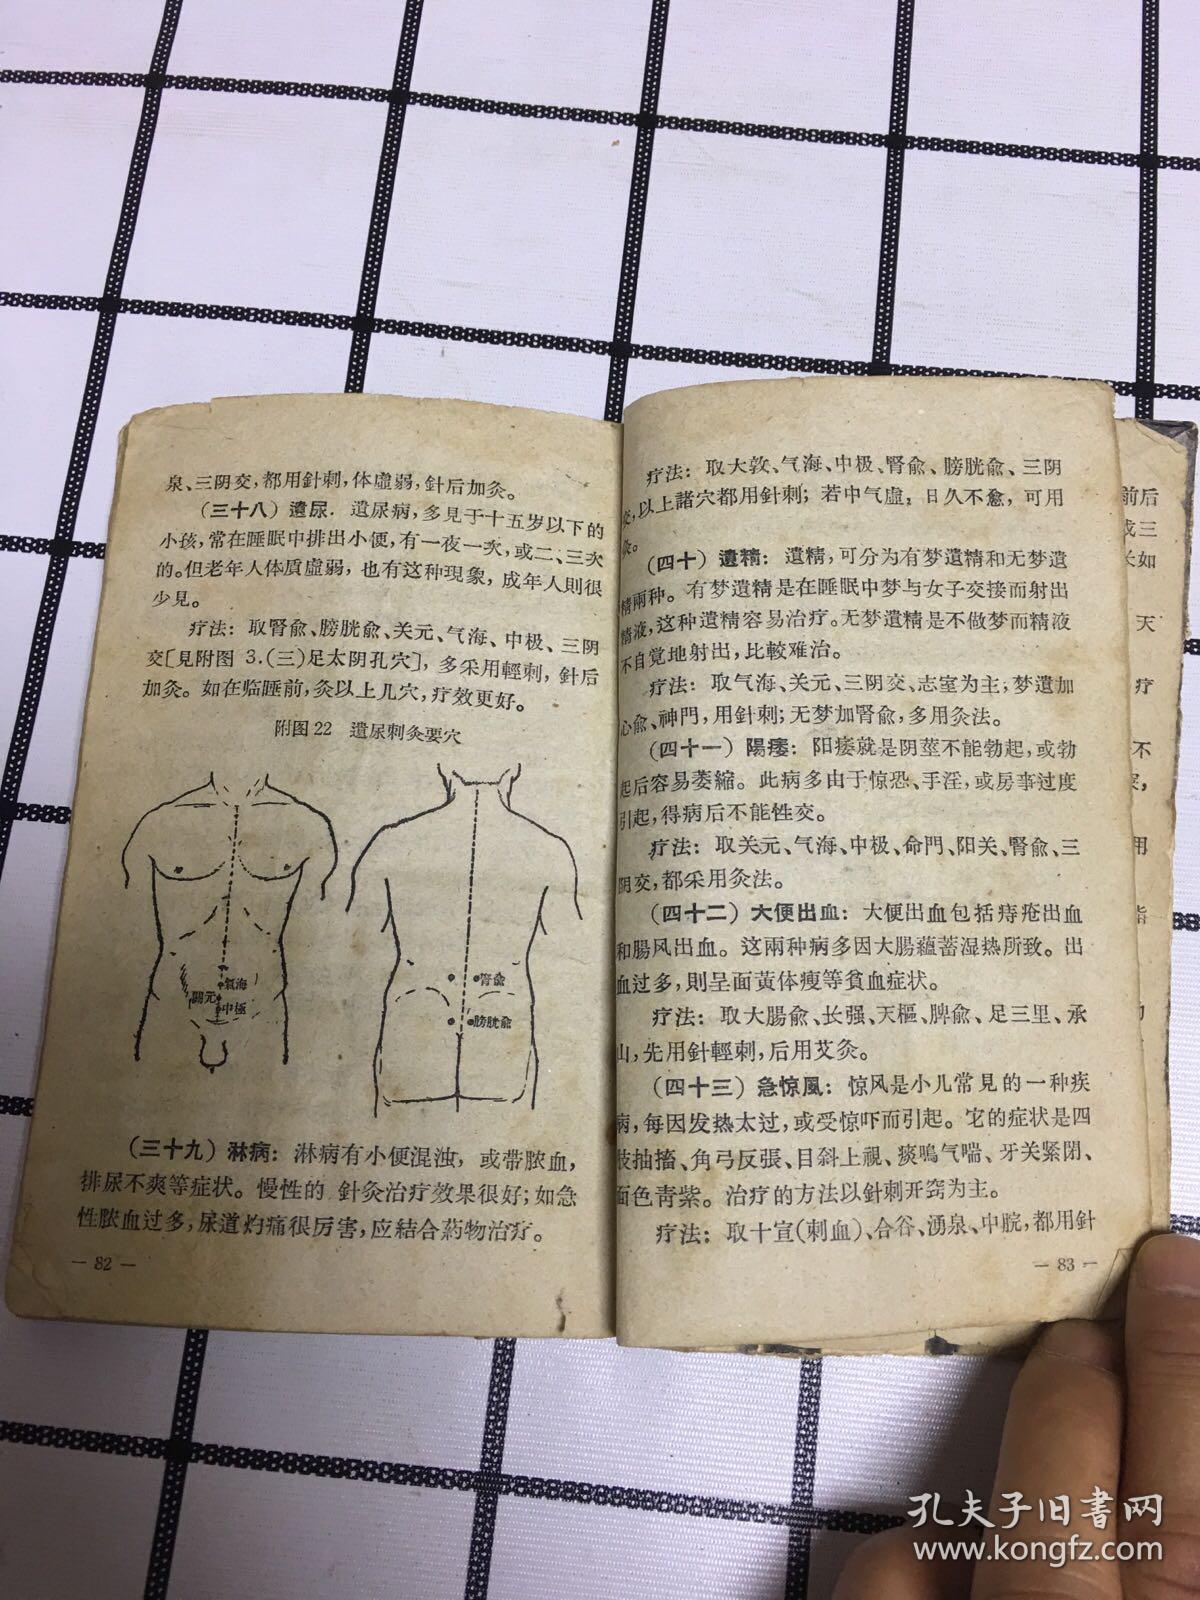 泉、三阴交,都用針刺,体虛弱,針后加灸。
(三十八) 遺尿. 遺尿病,多見于十五岁以下的
小孩,常在睡眠中排出小便,有一夜一次,或二、三次
的。但老年人体质虛弱,也有这种現象,成年人則很
少見。
疗法: 取腎俞、膀胱俞、关元、气海、中极、三阴
交[見附图 3.(三)足太阴孔穴], 多采用輕刺, 針后
加灸。如在临睡前,灸以上几穴,疗效更好。
附图22 遺尿刺灸要穴
氣海
關元
中極
腎俞
膀胱俞
(三十九) 淋病: 淋病有小便混浊, 或带脓血,
排尿不爽等症状。慢性的 針灸治疗效果很好;如急
性脓血过多,尿道灼痛很厉害,应結合葯物治疗。
— 82 —
疗法: 取大敦、气海、中极、腎俞、膀胱俞、三阴
交,以上諸穴都用針刺; 若中气虛, 日久不愈, 可用
灸。
(四十) 遺精: 遺精,可分为有梦遺精和无梦遺
精兩种。有梦遺精是在睡眠中梦与女子交接而射出
精液,这种遺精容易治疗。无梦遺精是不做梦而精液
不自覚地射出,比較难治。
疗法: 取气海、关元、三阴交、志室为主;梦遺加
心俞、神門,用針刺;无梦加腎俞,多用灸法。
(四十一) 陽痿: 阳痿就是阴莖不能勃起,或勃
起后容易萎縮。此病多由于惊恐、手淫,或房事过度
引起,得病后不能性交。
疗法: 取关元、气海、中极、命門、阳关、腎俞、三
阴交,都采用灸法。
(四十二) 大便出血: 大便出血包括痔疮出血
和腸风出血。这兩种病多因大腸蘊蓄湿热所致。出
血过多,則呈面黃体瘦等貧血症状。
疗法: 取大腸俞、长强、天樞、脾俞、足三里、承
山,先用針輕刺,后用艾灸。
(四十三) 急惊風: 惊风是小儿常見的一种疾
病,每因发热太过,或受惊吓而引起。它的症状是四
肢抽搐、角弓反張、目斜上視、痰鳴气喘、牙关紧閉、
面色青紫。治疗的方法以針刺开窍为主。
疗法: 取十宣(刺血)、合谷、湧泉、中脘,都用針
— 83 —
前后
三
长如
天
疗
不
用
孔夫子旧书网
www.kongfz.com